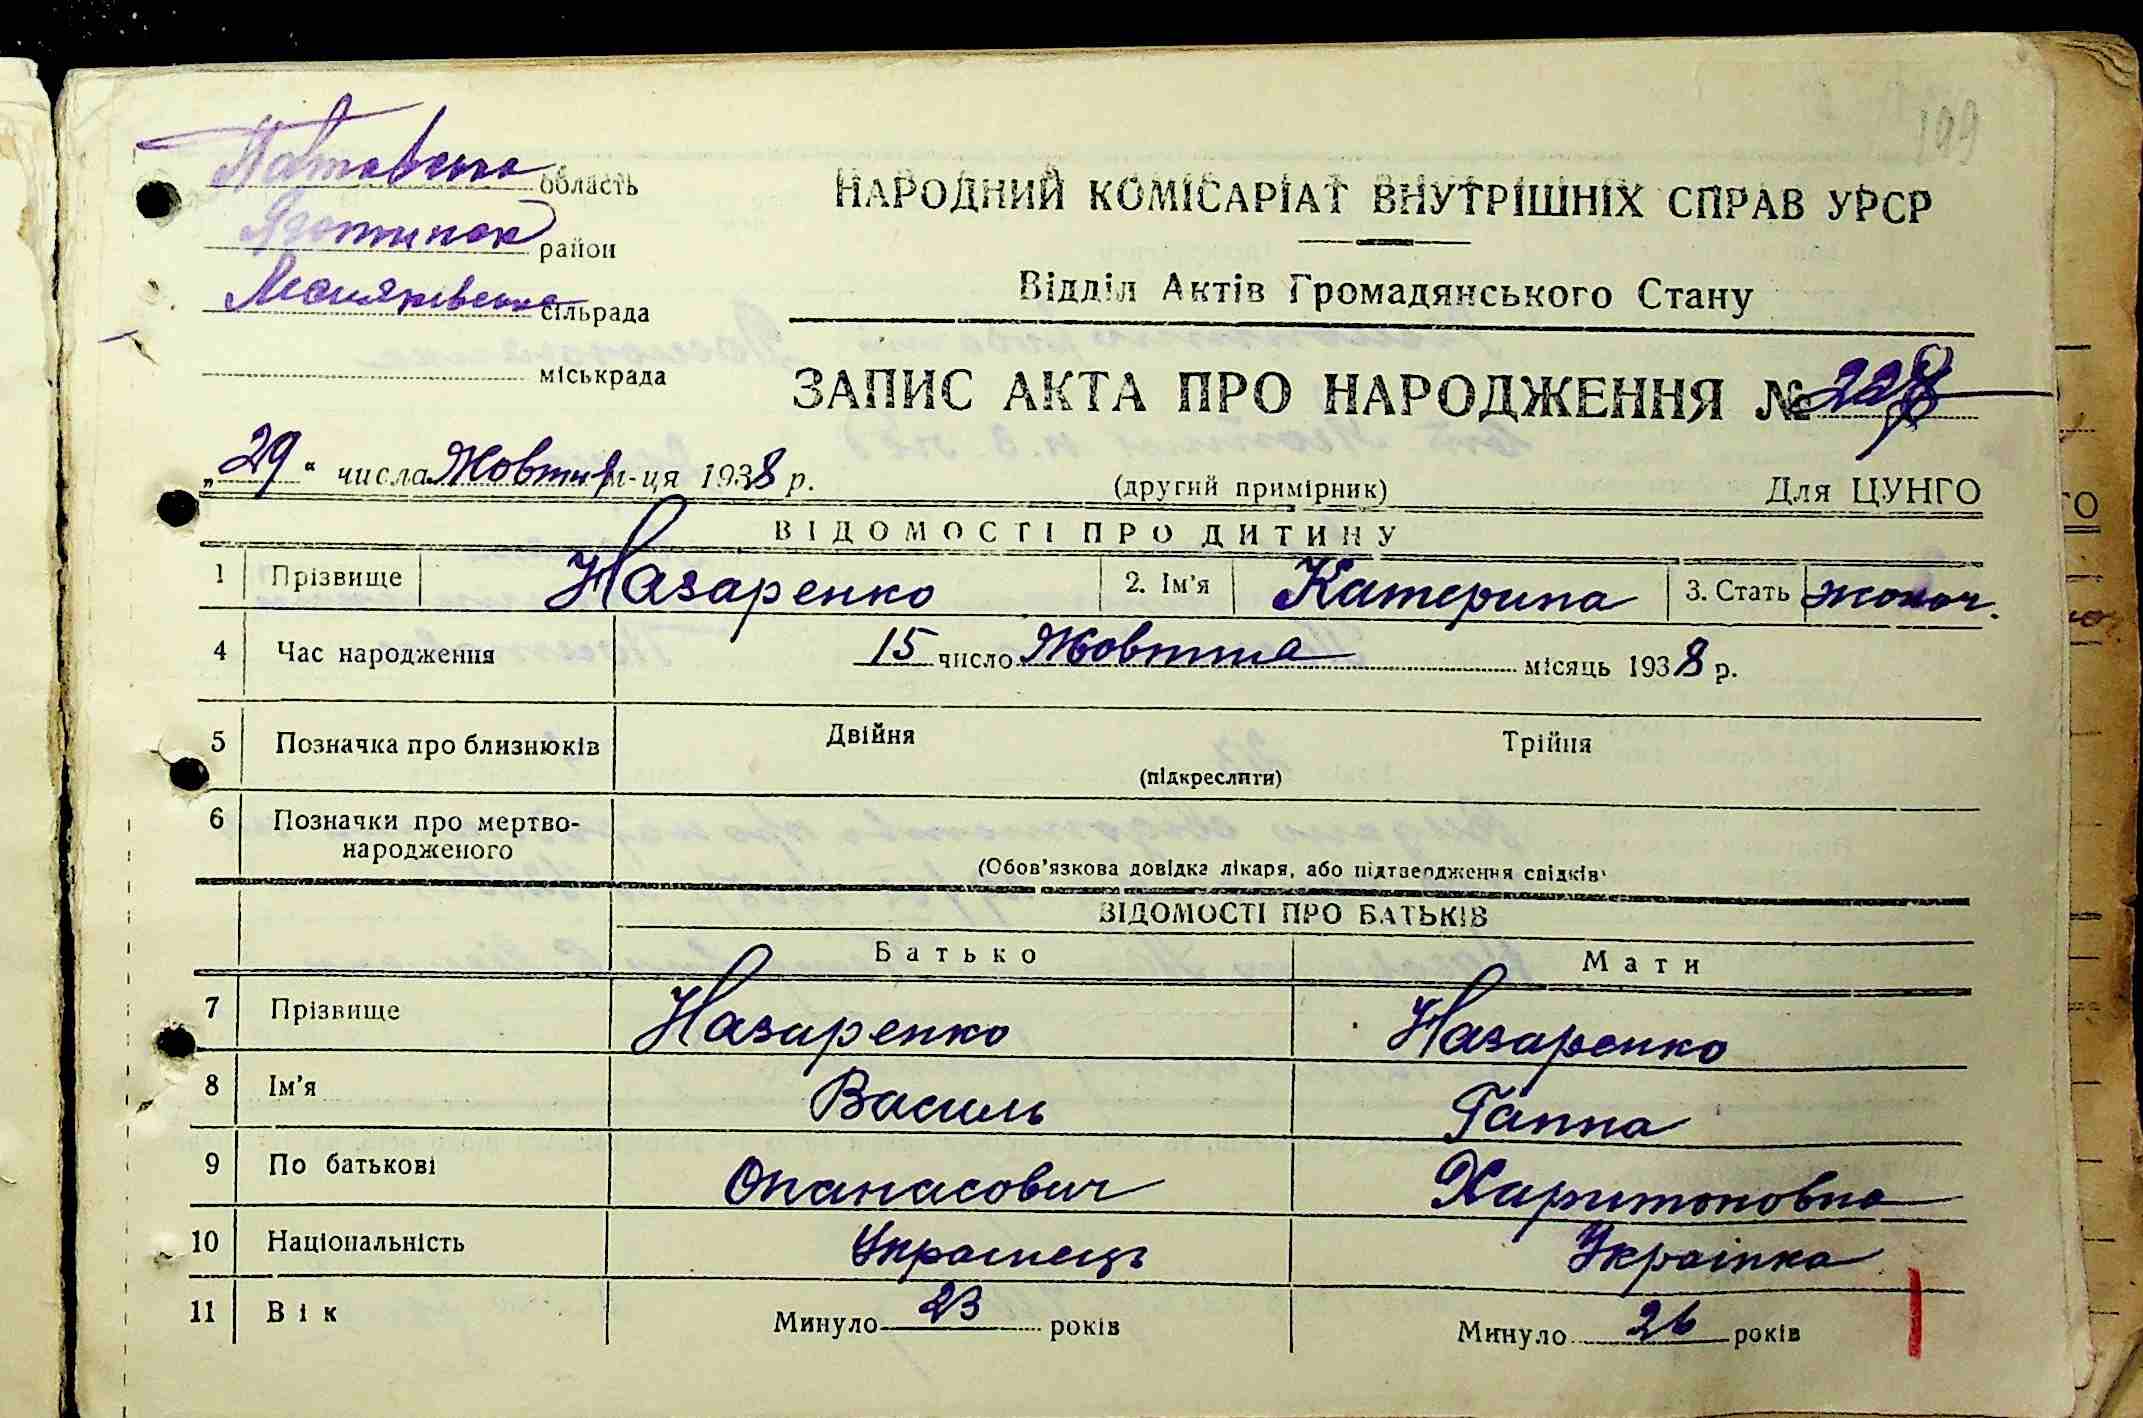 199
Полтавська область
Яготинськ район
Лемляхівська сільрада
міськрада
НАРОДНИЙ КОМІСАРІАТ ВНУТРІШНІХ СПРАВ УРСР
Відділ Актів Громадянського Стану
ЗАПИС АКТА ПРО НАРОДЖЕННЯ №
„29“ числа Жовтня м-ця 1938 р.
(другий примірник)
Для ЦУНГО
ВІДОМОСТІ ПРО ДИТИНУ
1 Прізвище Назаренко 2. Ім'я Катерина 3. Стать жоноч.
4 Час народження 15 число Жовтня місяць 1938 р.
5 Позначка про близнюків Двійня Трійня
(підкреслити)
6 Позначки про мертво-
народженого
(Обов'язкова довідка лікаря, або підтвердження свідків)
ВІДОМОСТІ ПРО БАТЬКІВ
Батько Мати
7 Прізвище Назаренко Назаренко
8 Ім'я Василь Ганна
9 По батькові Опанасович Харитоновна
10 Національність Українець Українка
11 Вік Минуло 23 років Минуло 26 років